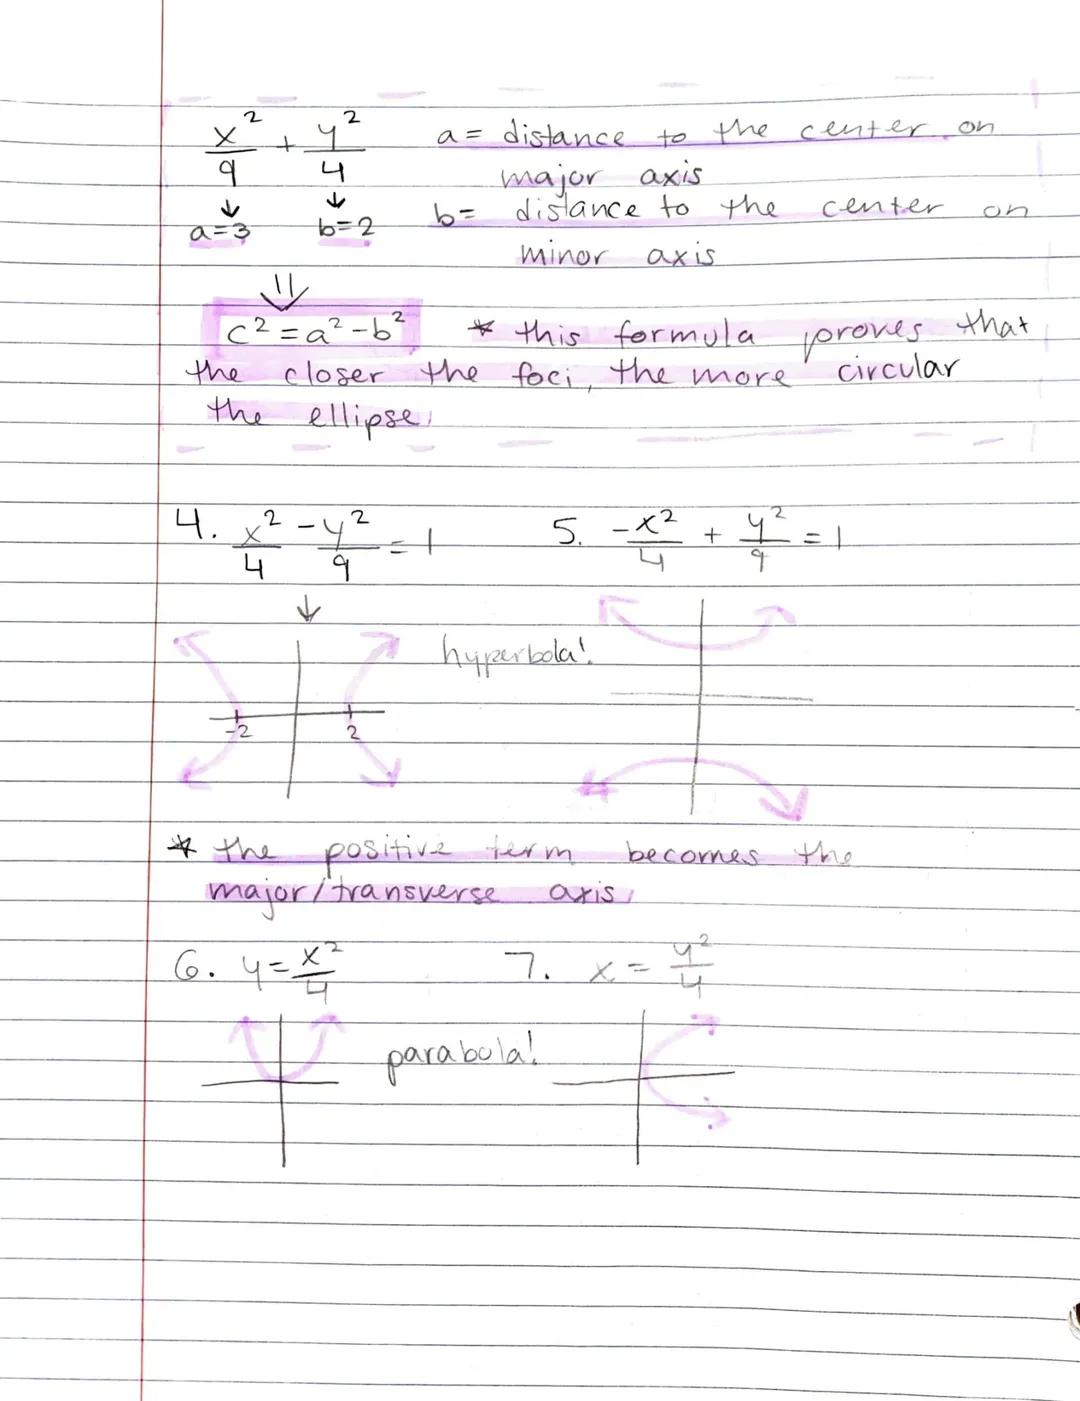 x²/9 + y²/4    a = distance to the center on
major axis
↓ ↓    b= distance to the center on
a=3    b=2
minor axis
⇓
c² = a² - b²    * this formula proves that
the closer the foci, the more circular
the ellipse.
4. x²/4 - y²/9 = 1    5. -x²/4 + y²/9 = 1
↓
hyperbola!
-2    2
* the positive term becomes the
major/transverse axis.
6. y = x²/4    7. x = y²/4
parabola!